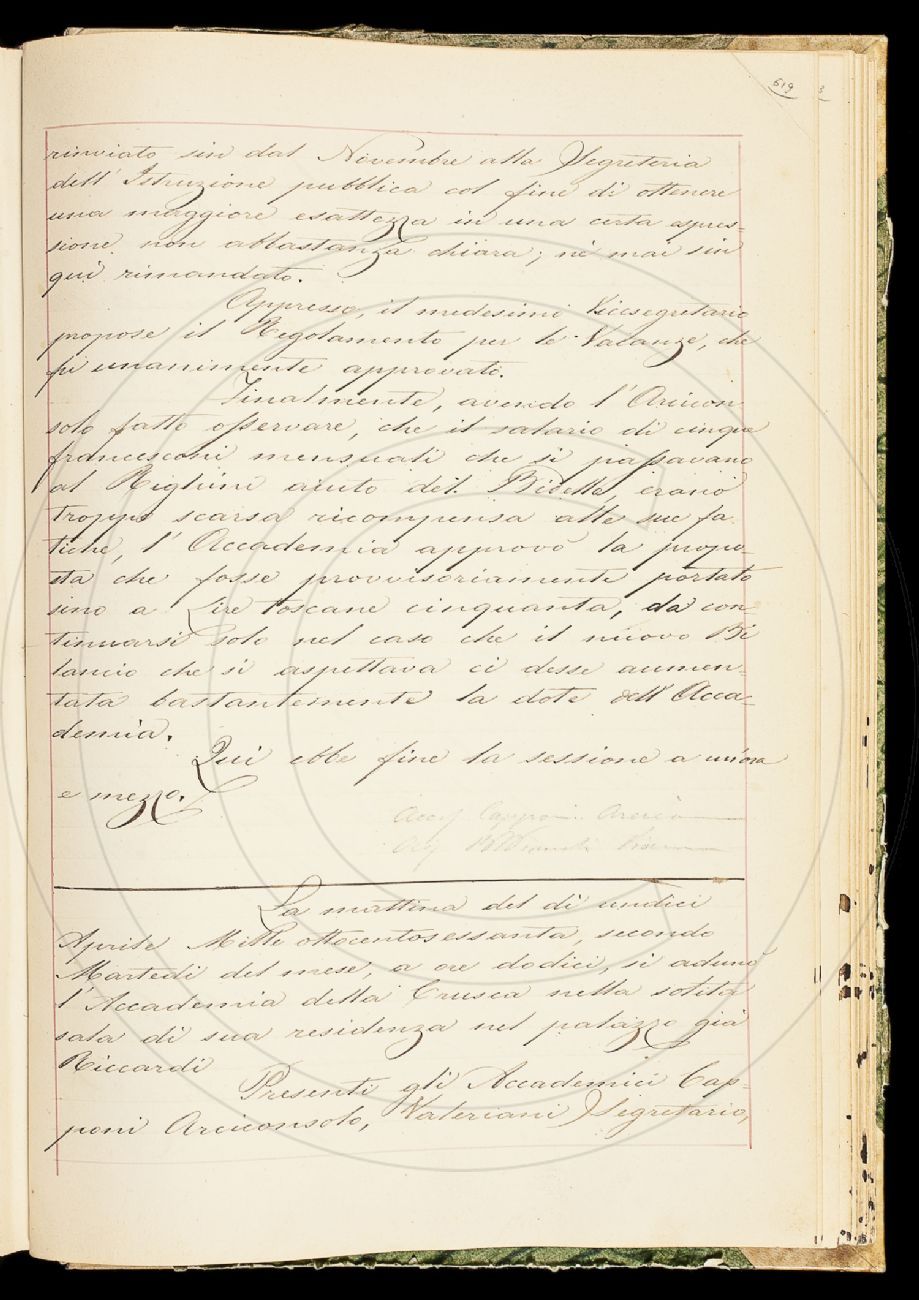 619
rinviato sin dal Novembre alla Segreteria
dell'Istruzione pubblica col fine di ottenere
una maggiore esattezza in una certa espres=
sione non abbastanza chiara; nè mai sin
qui rimandato.
Appresso, il medesimo Vicesegretario
propose il Regolamento per le Vacanze, che
fu unanimente approvato.
Finalmente, avendo l'Arcicon
solo fatto osservare, che il salario di cinque
francesconi mensuali che si passavano
al Righini aiuto del Bidello, erano
troppo scarsa ricompensa alle sue fa
tiche, l'Accademia approvò la propo-
sta che fosse provvisoriamente portato
sino a Lire toscane cinquanta, da con-
tinuarsi solo nel caso che il nuovo Bi
lancio che si aspettava ci desse aumen=
tata bastantemente la dote dell'Acca=
demia.
Qui ebbe fine la sessione a un'ora
e mezzo.
La mattina del dì undici
Aprile Mille ottocentosessanta, secondo
Martedì del mese, a ore dodici, si adunò
l'Accademia della Crusca nella solita
sala di sua residenza nel palazzo già
Riccardi
Presenti gli Accademici Cap=
poni Arciconsolo, Valeriani Segretario,